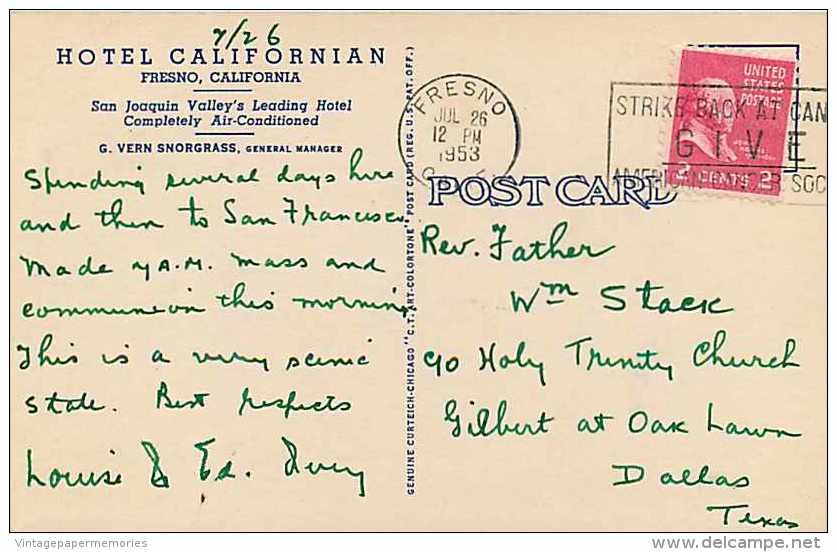 7/26
HOTEL CALIFORNIAN
FRESNO, CALIFORNIA
San Joaquin Valley's Leading Hotel
Completely Air-Conditioned
G. VERN SNORGRASS, GENERAL MANAGER
Spending several days here
and then to San Francisco.
Made 7 A.M. Mass and
communion this morning
This is a very scenic
State. Best respects
Louise & Ed.
GENUINE CURTEICH-CHICAGO "C.T. ART-COLORTONE" POST CARD (REG. U.S. PAT. OFF.)
FRESNO
JUL 26
12 PM
1953
STRIKE BACK AT CAN
GIVE
AMERICAN CANCER SOC
UNITED
STATES
POSTAGE
2 CENTS 2
POST CARD
Rev. Father
Wm Stack
c/o Holy Trinity Church
Gilbert at Oak Lawn
Dallas
Texas
Vintagepapermemories
delcampe.net